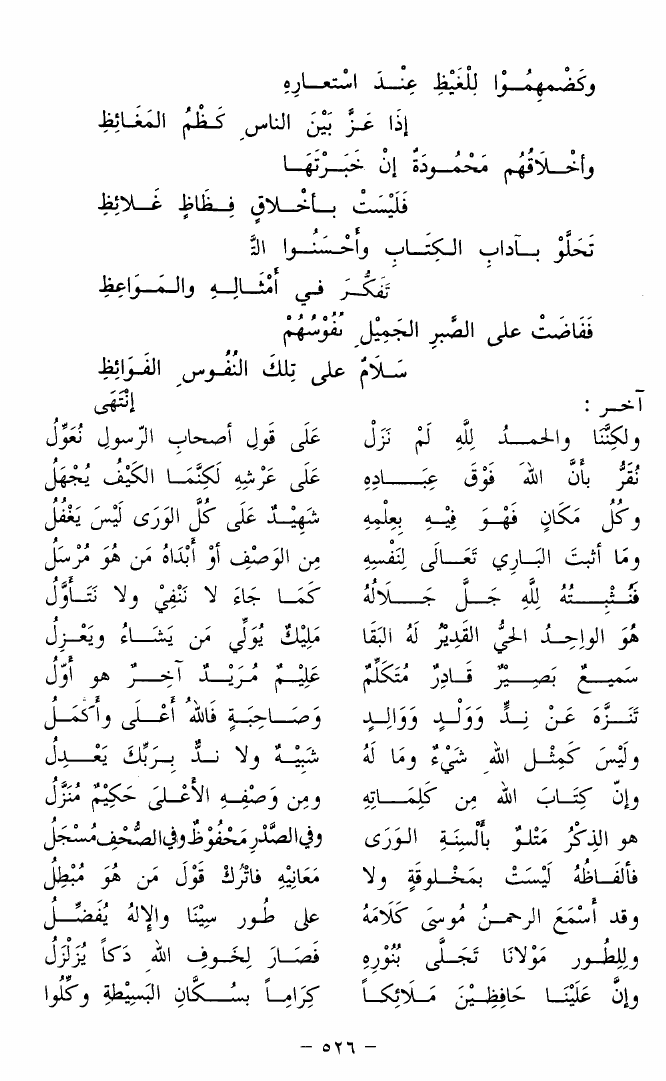 وكَضْمِهِمُـوْا لِلْغَيْظِ عِنْـدَ اسْتعـارِهِ
إذَا عَـزَّ بَيْنَ الناسِ كَـظْمُ المَغَـائِظِ
وأخْـلَاقُهُم مَحْمُـودَةٌ إنْ خَبَـرْتَهَـا
فَلَيْسَتْ بـأخْـلاقٍ فِـظَاظٍ غَـلائِظِ
تَحَلَّوْ بـآدابِ الـكِتَـابِ وأَحْسَنُـوا التَّ
تَفَكُّـرَ فـي أَمْثَـالِـهِ والـمَـوَاعِظِ
فَفَاضَتْ على الصَّبرِ الجَمِيْلِ نُفُوْسُهُمْ
سَـلَامٌ على تِلكَ النُّفُوسِ الفَـوَائِظِ
إنْتَهَى
آخـر :
ولكِنَّنَا والحمـدُ لِلَّهِ لَمْ نَزَلْ عَلَى قَولِ أصحابِ الرّسولِ نُعَوِّلُ
نُقَرُّ بأَنَّ اللهَ فَوْقَ عِبَـادِهِ عَلَى عَرْشِهِ لَكِنَّمَـا الكَيْفُ يُجْهَلُ
وكُلُ مَكَانٍ فَهْـوَ فِيْـهِ بِعِلْمِهِ شَهِيْـدٌ عَلَى كُلَّ الوَرَى لَيْسَ يَغْفُلُ
ومَا أثبتَ البَـارِي تَعَـالَى لِنَفْسِهِ مِن الوَصْفِ أوْ أَبْدَاهُ مَن هُوَ مُرْسَلُ
فَنُـثْبِـتُهُ لِلَّهِ جَـلَّ جَـلَالُهُ كَمَـا جَاءَ لا نَنْفِيْ ولا نَتَـأوَّلُ
هُوَ الواحِـدُ الحيُّ القَدِيْرُ لَهُ البَقَا مَلِيْكٌ يُوَلِّي مَن يَشَـاءُ ويَعْـزِلُ
سَمِيـعٌ بَصِيـرٌ قَـادِرٌ مُتَكَلِّمٌ عَلِيْـمٌ مُـرَيْـدٌ آخِـرٌ هو أوّلُ
تَنَـزَّهَ عَـنْ نِـدٍّ وَوَلْـدٍ وَوَالِـدٍ وَصَـاحِبَـةٍ فَاللهُ أَعْـلَى وأكمَـلُ
ولَيْسَ كَمِثْـلِ اللهِ شَيْءٌ ومَا لَهُ شَبِيْـهٌ ولا نـدٌّ بِـرَبِّكَ يَعْـدِلُ
وإنّ كِتَـابَ اللهِ مِن كَلِمَـاتِهِ ومِن وَصْفِـهِ الأَعْـلىَ حَكِيْمٌ مُنَزَّلُ
هو الذِكْرُ مَتْلوٌ بأَلْسِنَةِ الوَرَى وفي الصَّدْرِ مَحْفُوظٌ وفي الصُّحْفِ مُسْجَلُ
فألفَـاظُهُ لَيْسَتْ بمَخْلوقَةٍ ولا مَعَانِيْهِ فاتْرُكْ قَوْلَ مَن هُوَ مُبْطِلُ
وقد أَسْمَعَ الرحمـنُ مُوسَى كَلَامَهُ على طُور سِيْنَا والإِلهُ يُفَضِّـلُ
ولِلطُورِ مَوْلَانَا تَجَـلَّى بِنُوْرِهِ فَصَـارَ لِخَـوفِ اللهِ دَكاً يُزَلْزَلُ
وإنَّ عَلَيْنَـا حَافِظِيْنَ مَـلَائِكـاً كِرَامـاً بسُـكَّانِ البَسِيْطةِ وكِّلُوا
– ٥٢٦ –